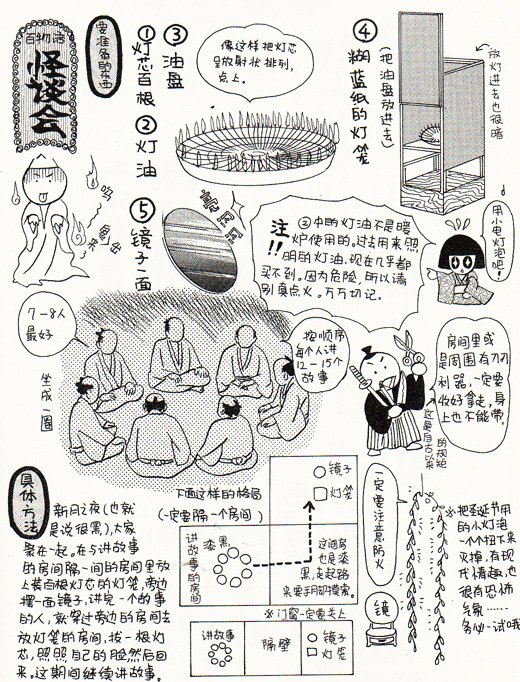 百物语
怪谈会
要准备的东西
①灯芯百根
②灯油
③油盘
像这样把灯芯
呈放射状排列,
点上。
④糊蓝纸的灯笼
(把油盘放进去)
放灯进去也很暗
呜
⑤镜子一面
亮闪闪
注!!
②中的灯油不是暖
炉使用的。过去用来照
明的灯油,现在几乎都
买不到。因为危险,所以请
别真点火。万万切记。
用小电灯泡吧!
7-8人
最好
坐成一圈
按顺序
每个人讲
12-15个
故事
房间里或
是周围有刀刃
利器,一定要
收好拿走,身
上也不能带。
这是自古以来
的规矩
具体方法
新月之夜(也就
是说很黑),大家
聚在一起。在与讲故事
的房间隔一间的房间里放
上装百根灯芯的灯笼,旁边
摆一面镜子,讲完一个故事
的人,就穿过旁边的房间去
放灯笼的房间,拔一根灯
芯,照照自己的脸然后回
来。这期间继续讲故事。
下面这样的格局
(一定要隔一个房间)
镜子
灯笼
讲故事的房间
漆黑
这间房
也是漆
黑,走起路
来要手脚摸索。
※门窗一定要关上
讲故事
隔壁
镜子
灯笼
一定要注意防火
镜
※把圣诞节用
的小灯泡
一个个扭下来
灭掉,有现
代情趣,也
很有恐怖
气氛……
务必一试哦